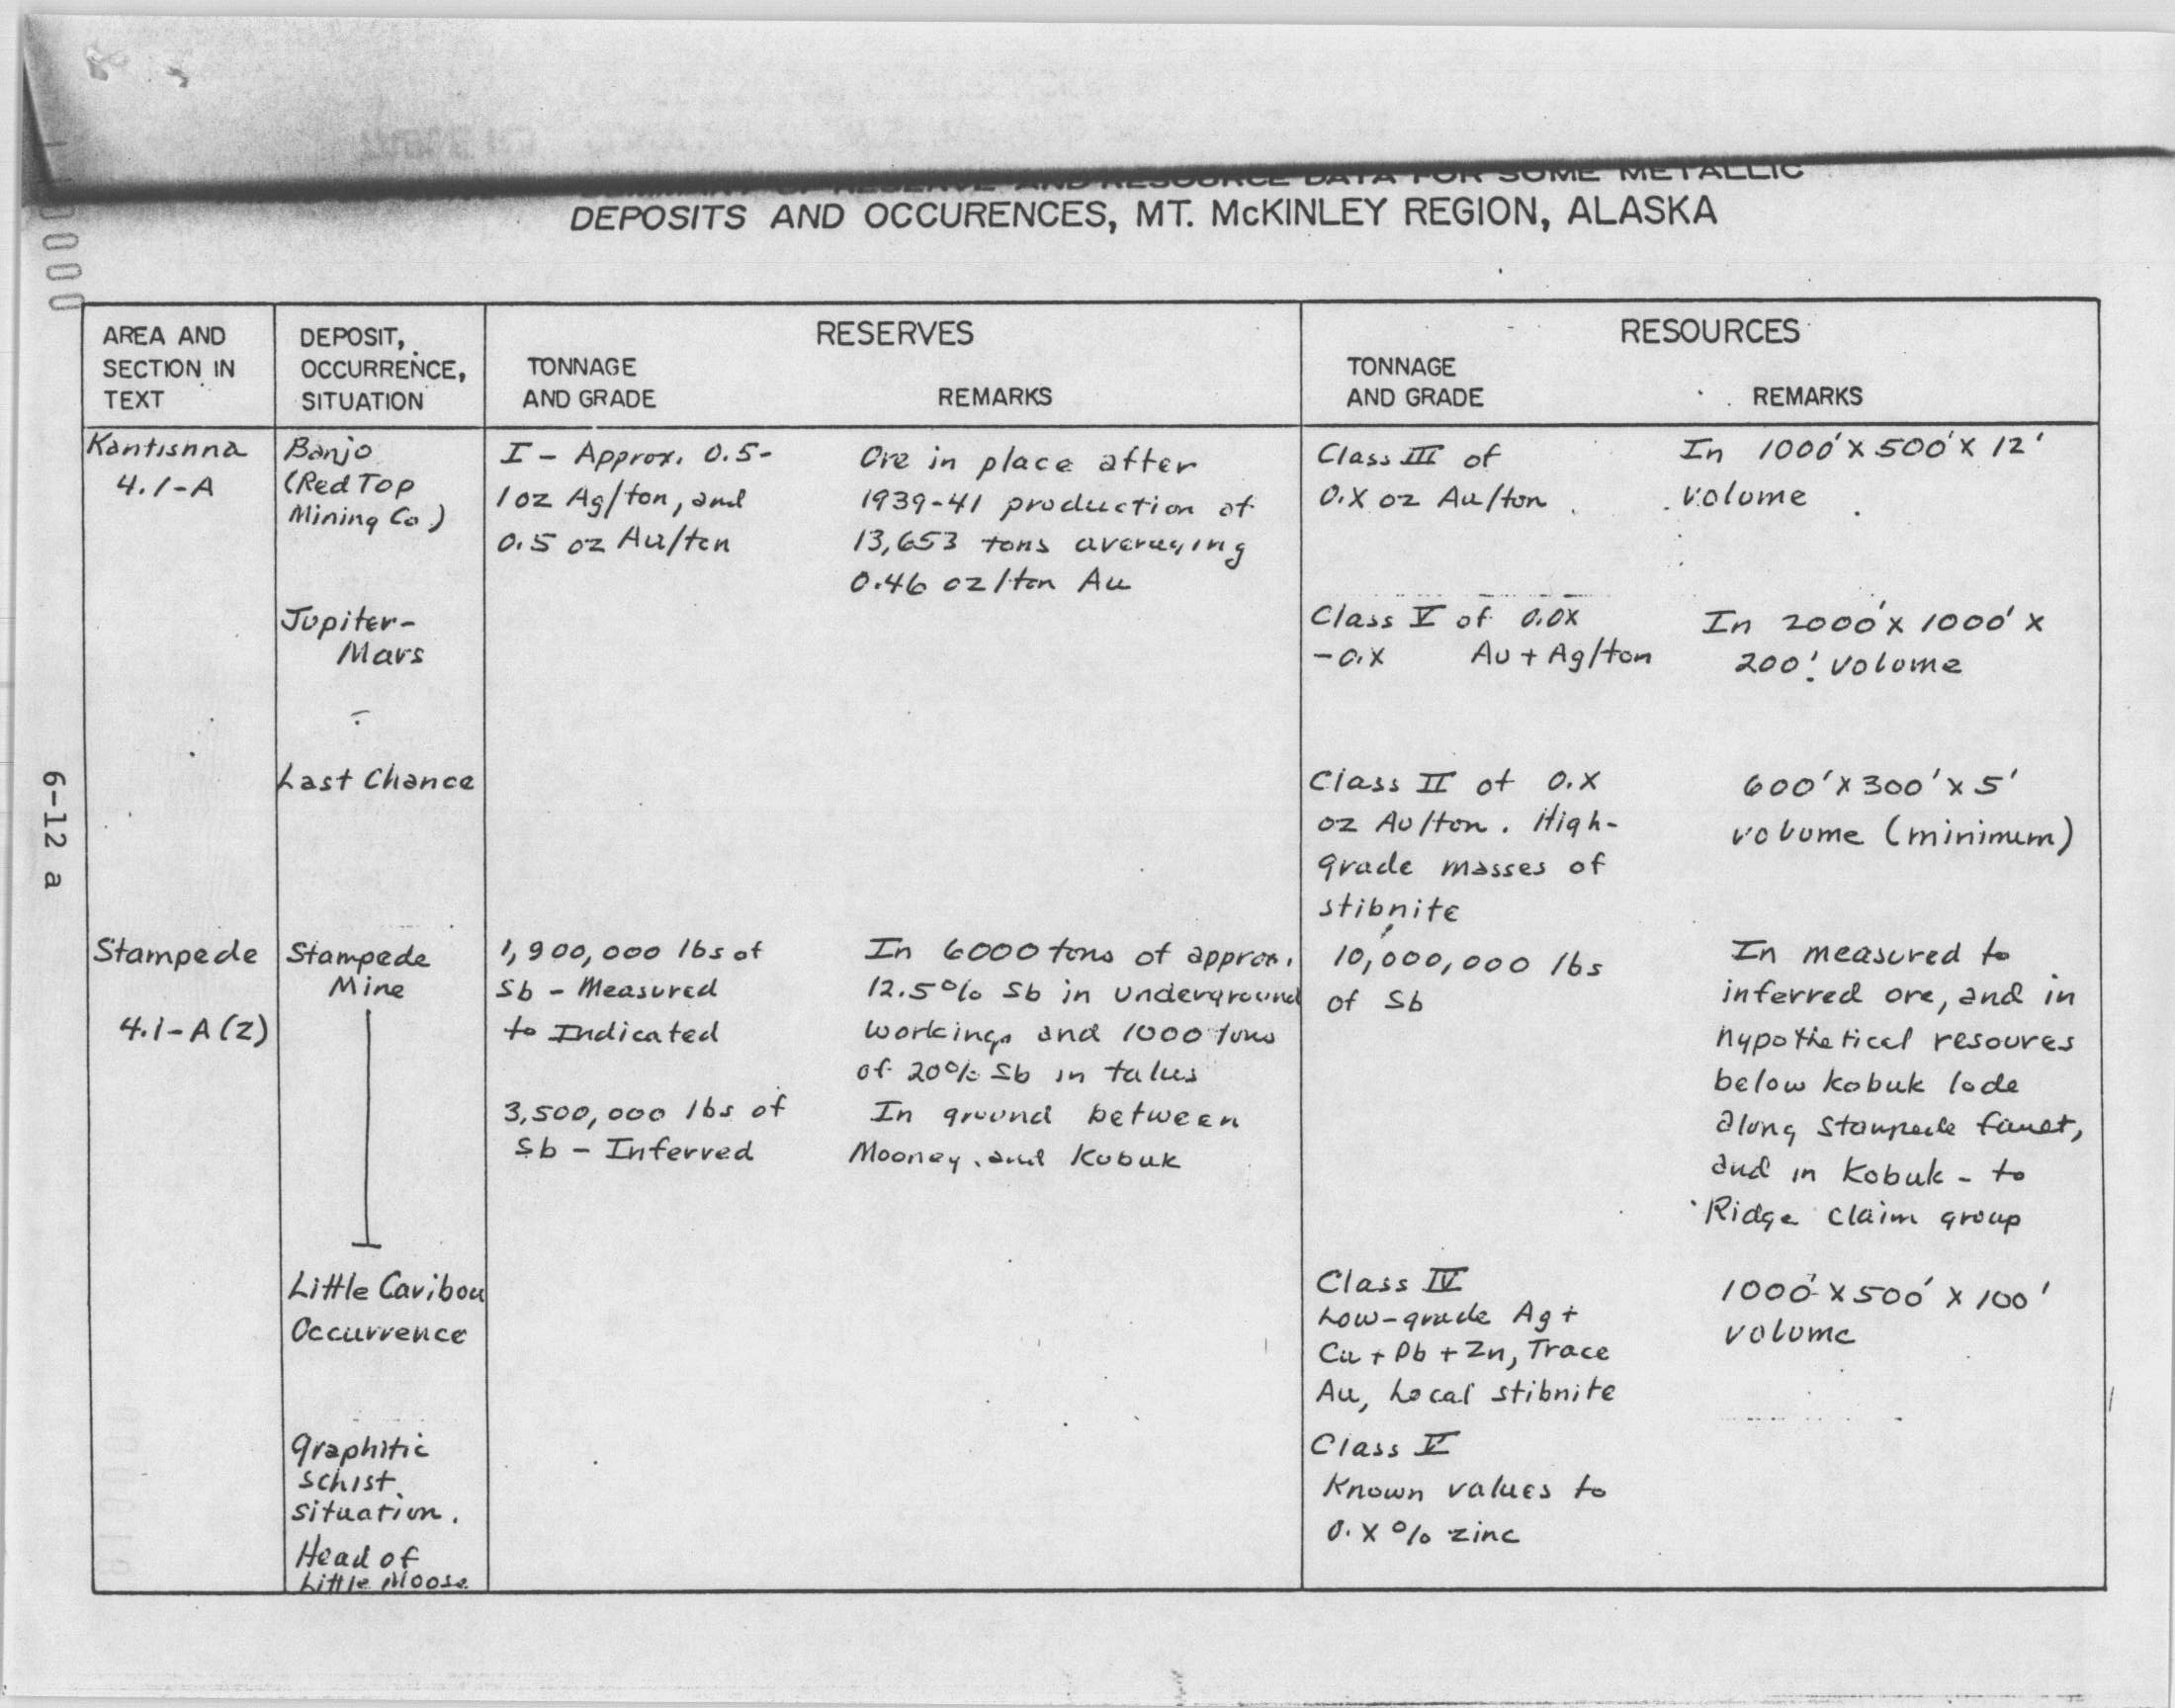 SUMMARY OF RESERVE AND RESOURCE DATA FOR SOME METALLIC
DEPOSITS AND OCCURENCES, MT. McKINLEY REGION, ALASKA
AREA AND
SECTION IN
TEXT
DEPOSIT,
OCCURRENCE,
SITUATION
RESERVES
TONNAGE
AND GRADE
REMARKS
RESOURCES
TONNAGE
AND GRADE
REMARKS
Kantishna
4.1-A
Banjo
(Red Top
Mining Co)
I - Approx. 0.5-
1 oz Ag/ton, and
0.5 oz Au/ton
Ore in place after
1939-41 production of
13,653 tons averaging
0.46 oz/ton Au
Class III of
0.X oz Au/ton
In 1000' X 500' X 12'
volume
Jupiter-
Mars
Class V of 0.0X
-0.X Au + Ag/ton
In 2000' X 1000' X
200' volume
Last Chance
Class II of 0.X
oz Au/ton. High-
grade masses of
stibnite
600' X 300' X 5'
volume (minimum)
Stampede
4.1-A(2)
Stampede
Mine
1,900,000 lbs of
Sb - Measured
to Indicated
In 6000 tons of approx.
12.5% Sb in underground
workings and 1000 tons
of 20% Sb in talus
3,500,000 lbs of
Sb - Inferred
In ground between
Mooney and Kobuk
10,000,000 lbs
of Sb
In measured to
inferred ore, and in
hypothetical resoures
below Kobuk lode
along Stampede fault,
and in Kobuk - to
Ridge claim group
Little Caribou
Occurrence
Class IV
Low-grade Ag +
Cu + Pb + Zn, Trace
Au, Local stibnite
1000' X 500' X 100'
volume
Graphitic
schist
situation.
Head of
Little Moose
Class V
Known values to
0.X% zinc
6-12 a